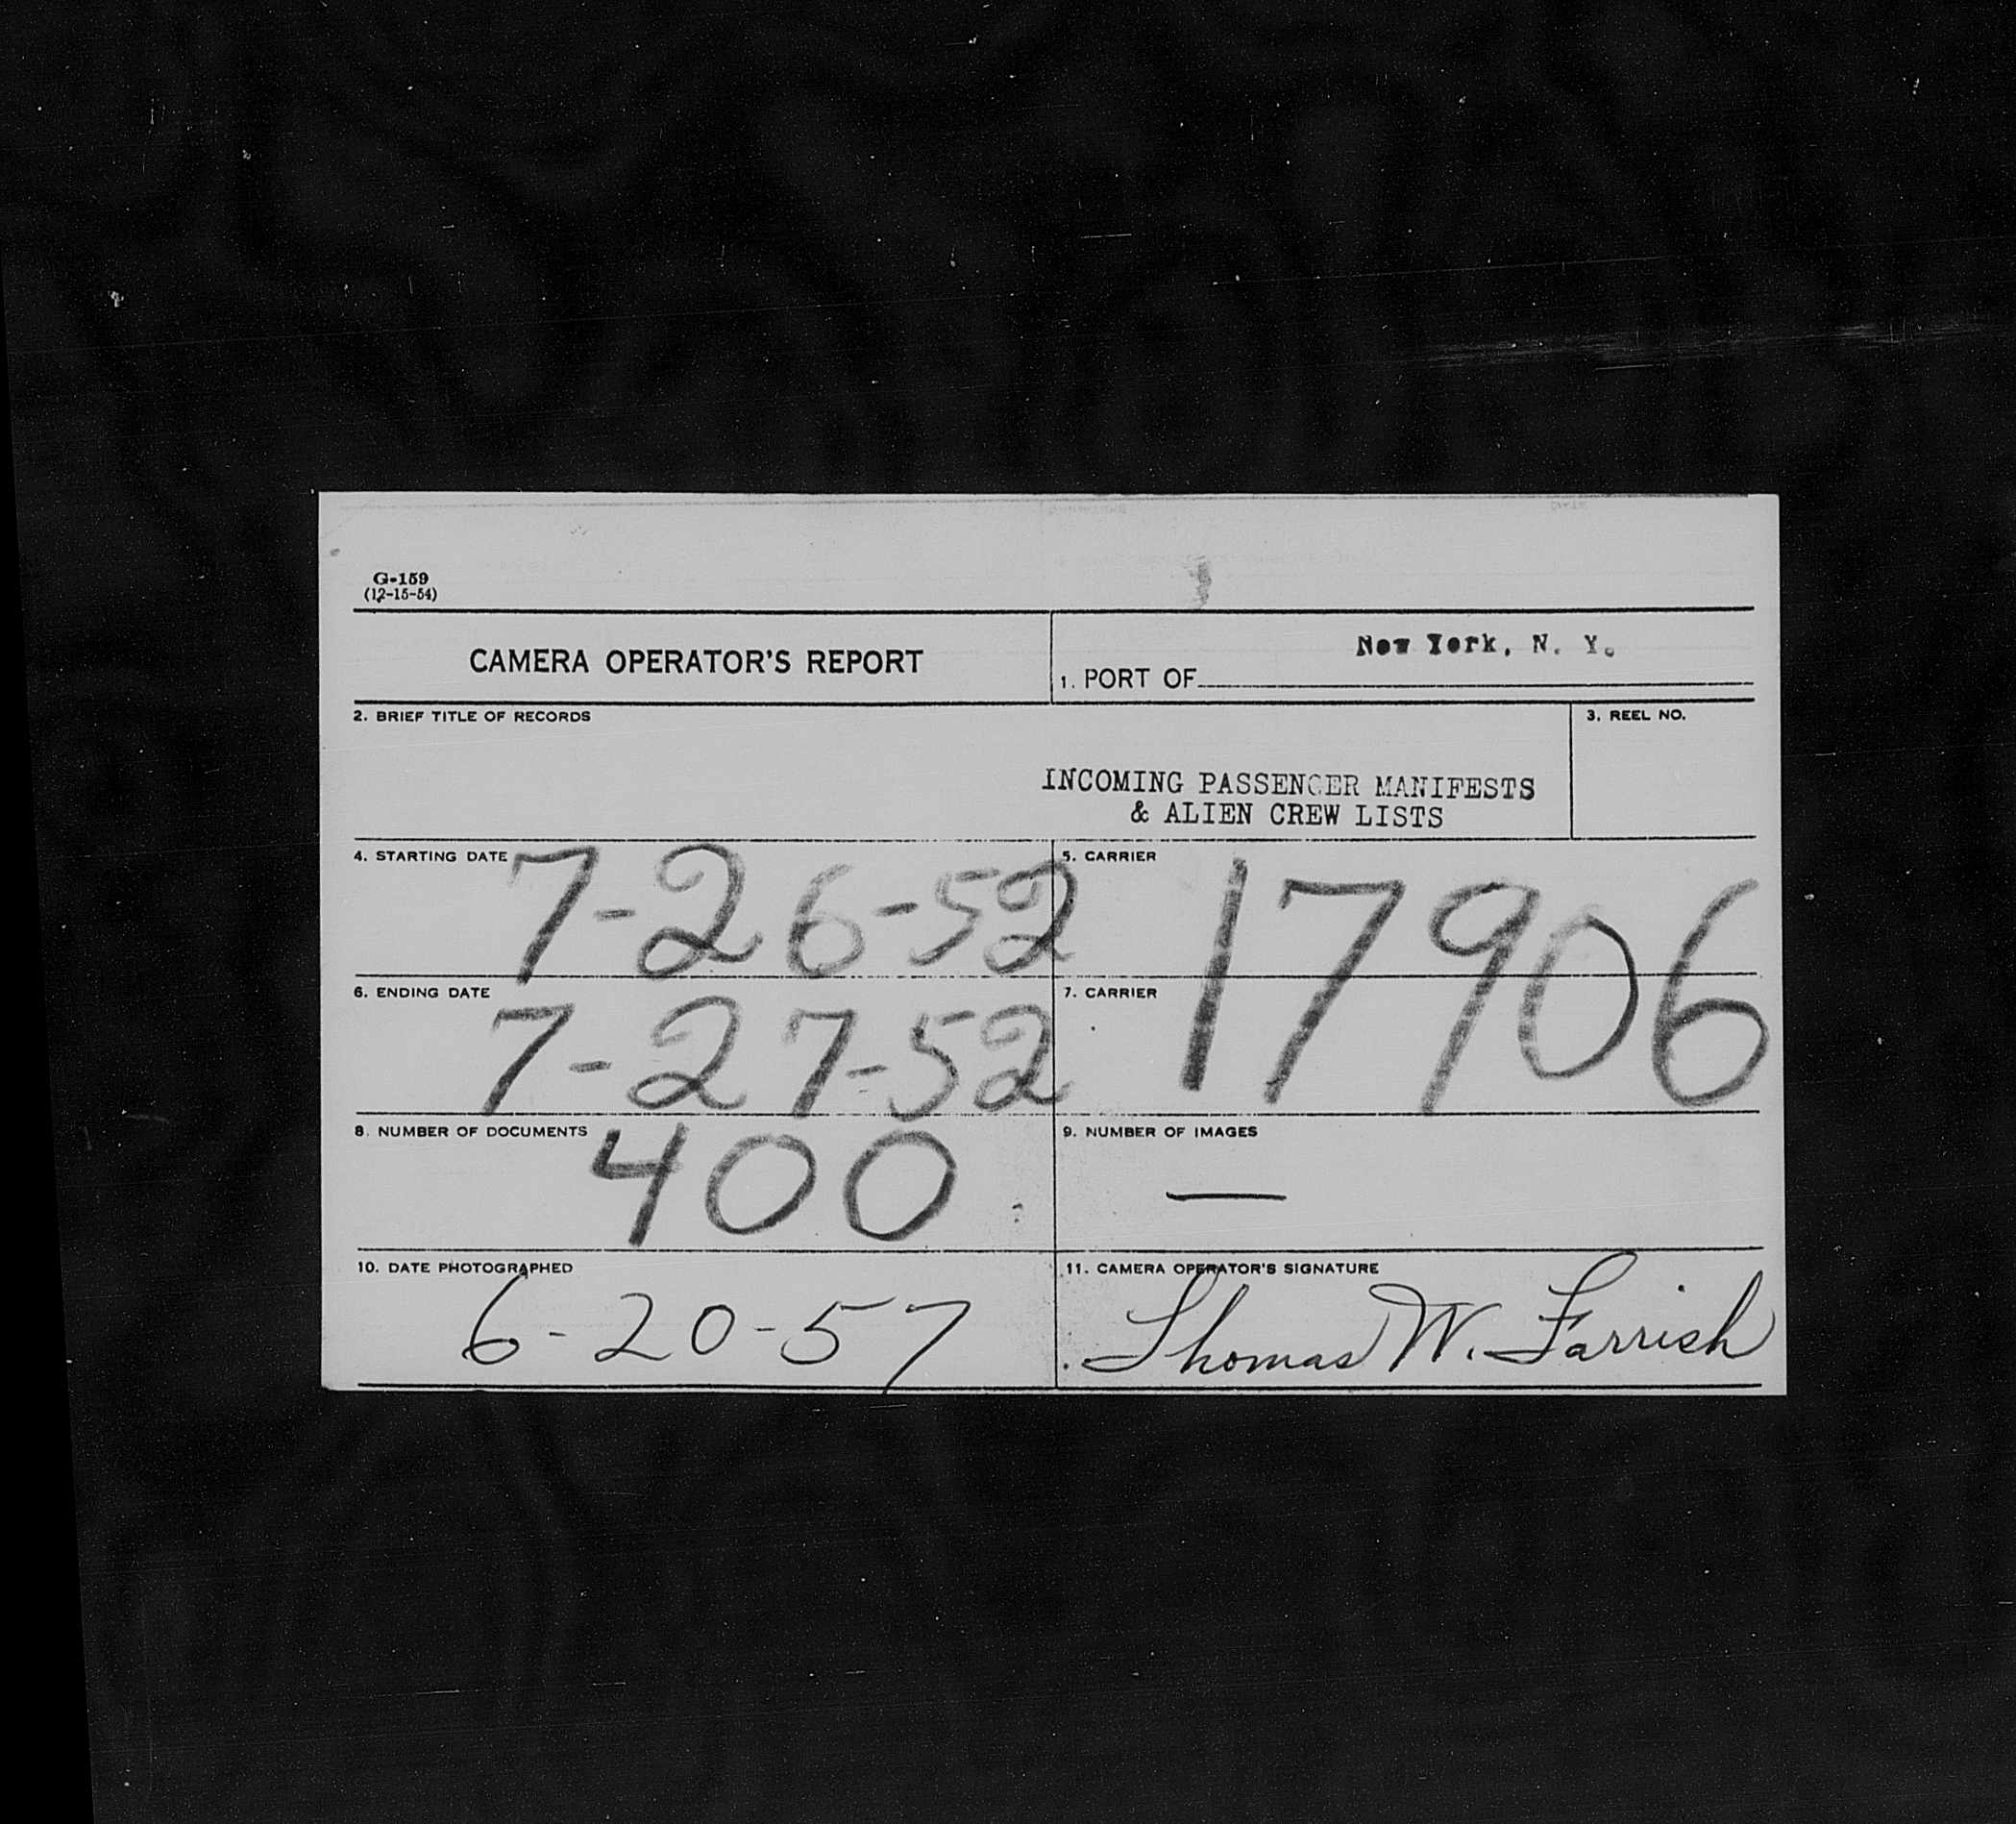 G-159
(12-15-54)
CAMERA OPERATOR'S REPORT
New York, N. Y.
1. PORT OF
2. BRIEF TITLE OF RECORDS
3. REEL NO.
INCOMING PASSENGER MANIFESTS
& ALIEN CREW LISTS
4. STARTING DATE 7-26-52
5. CARRIER
17906
6. ENDING DATE 7-27-52
7. CARRIER
8. NUMBER OF DOCUMENTS 400
9. NUMBER OF IMAGES —
10. DATE PHOTOGRAPHED
6-20-57
11. CAMERA OPERATOR'S SIGNATURE
Thomas W. Farrish